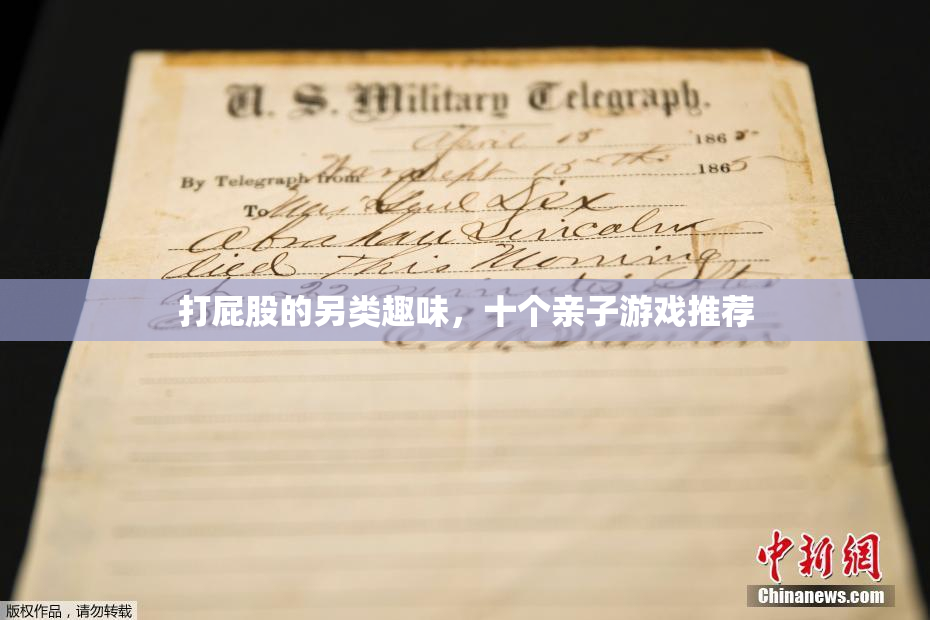 U. S. Military Telegraph.
April 15 1865
By Telegraph from War Dept 15th 1865
To Maj Genl Dix
Abraham Lincoln
died This Morning
at 22 minutes after
打屁股的另类趣味，十个亲子游戏推荐
中新网
Chinanews.com
版权作品，请勿转载